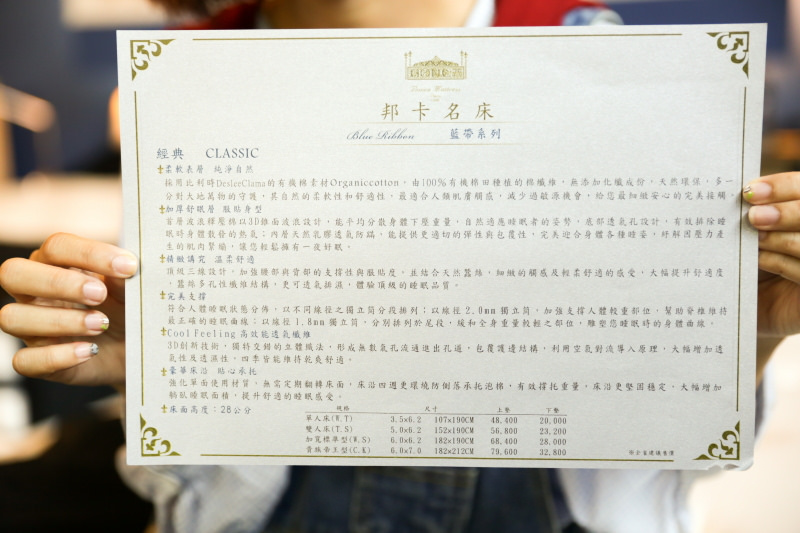 邦卡名床
Blue Ribbon 藍帶系列
經典 CLASSIC
柔軟表層 純淨自然
採用比利時DesleeClama的有機棉素材Organiccotton，由100%有機棉田種植的棉纖維，無添加化纖成份，天然環保，多一
分對大地萬物的守護，其自然的柔軟性和舒適性，最適合人類肌膚觸感，減少過敏源機會，給您最細緻安心的完美接觸。
加厚舒眠層 服貼身型
首層波浪釋壓棉以3D維面波浪設計，能平均分散身體下壓重量，自然適應睡眠者的姿勢，底部透氣孔設計，有效排除睡
眠時身體散發的熱氣；內層天然乳膠透氣防蹣，能提供更適切的彈性與包覆性，完美迎合身體各種睡姿，紓解因壓力產
生的肌肉緊繃，讓您輕鬆擁有一夜好眠。
精緻講究 溫柔舒適
頂級三線設計，加強腰部與背部的支撐性與服貼度，並結合天然蠶絲，細緻的觸感及輕柔舒適的感受，大幅提升舒適度
，蠶絲多孔性纖維結構，更可透氣排濕，體驗頂級的睡眠品質。
完美支撐
符合人體睡眠狀態分佈，以不同線徑之獨立筒分段排列；以線徑2.0mm獨立筒，加強支撐人體較重部位，幫助脊維維持
最正確的睡眠曲線；以線徑1.8mm獨立筒，分別排列於尾段，緩和全身重量較輕之部位，雕塑您睡眠時的身體曲線。
Cool Feeling 高效能透氣纖維
3D創新技術，獨特交錯的立體織法，形成無數氣孔流通進出孔道，包覆護邊結構，利用空氣對流導入原理，大幅增加透
氣性及透濕性，四季皆能維持乾爽舒適。
豪華床沿 貼心承托
強化單面使用材質，無需定期翻轉床面，床沿四週更環繞防側落承托泡棉，有效撐托重量，床沿更堅固穩定，大幅增加
躺臥睡眠面積，提升舒適的睡眠感受。
床面高度：28公分
規格 尺寸 上墊 下墊
單人床(W.T) 3.5x6.2 107x190CM 48,400 20,000
雙人床(T.S) 5.0x6.2 152x190CM 56,800 23,200
加寬標準型(W.S) 6.0x6.2 182x190CM 68,400 28,000
貴族帝王型(C.K) 6.0x7.0 182x212CM 79,600 32,800